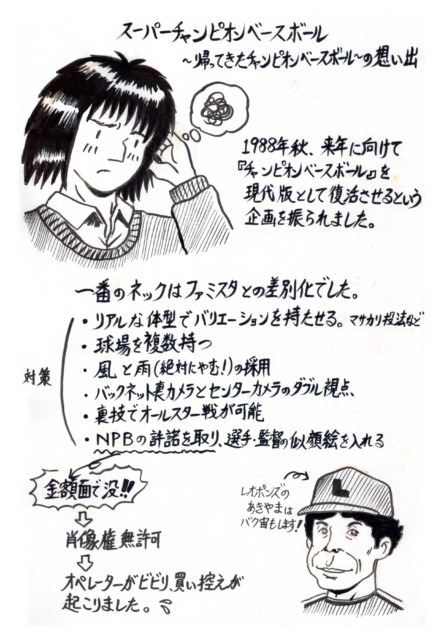 スーパーチャンピオンベースボール
～帰ってきたチャンピオンベースボール～の想い出
1988年秋、来年に向けて
『チャンピオンベースボール』を
現代版として復活させるという
企画を振られました。
一番のネックはファミスタとの差別化でした。
対策
・リアルな体型でバリエーションを持たせる。マサカリ投法など
・球場を複数持つ
・風と雨(絶対にやむ!)の採用
・バックネット裏カメラとセンターカメラのダブル視点、
・裏技でオールスター戦が可能
・NPBの許諾を取り、選手・監督の似顔絵を入れる
金額面で没!!
⇩
肖像権無許可
⇩
オペレーターがビビり、買い控えが
起こりました。
レオポンズの
あきやまは
バク宙もします!
L